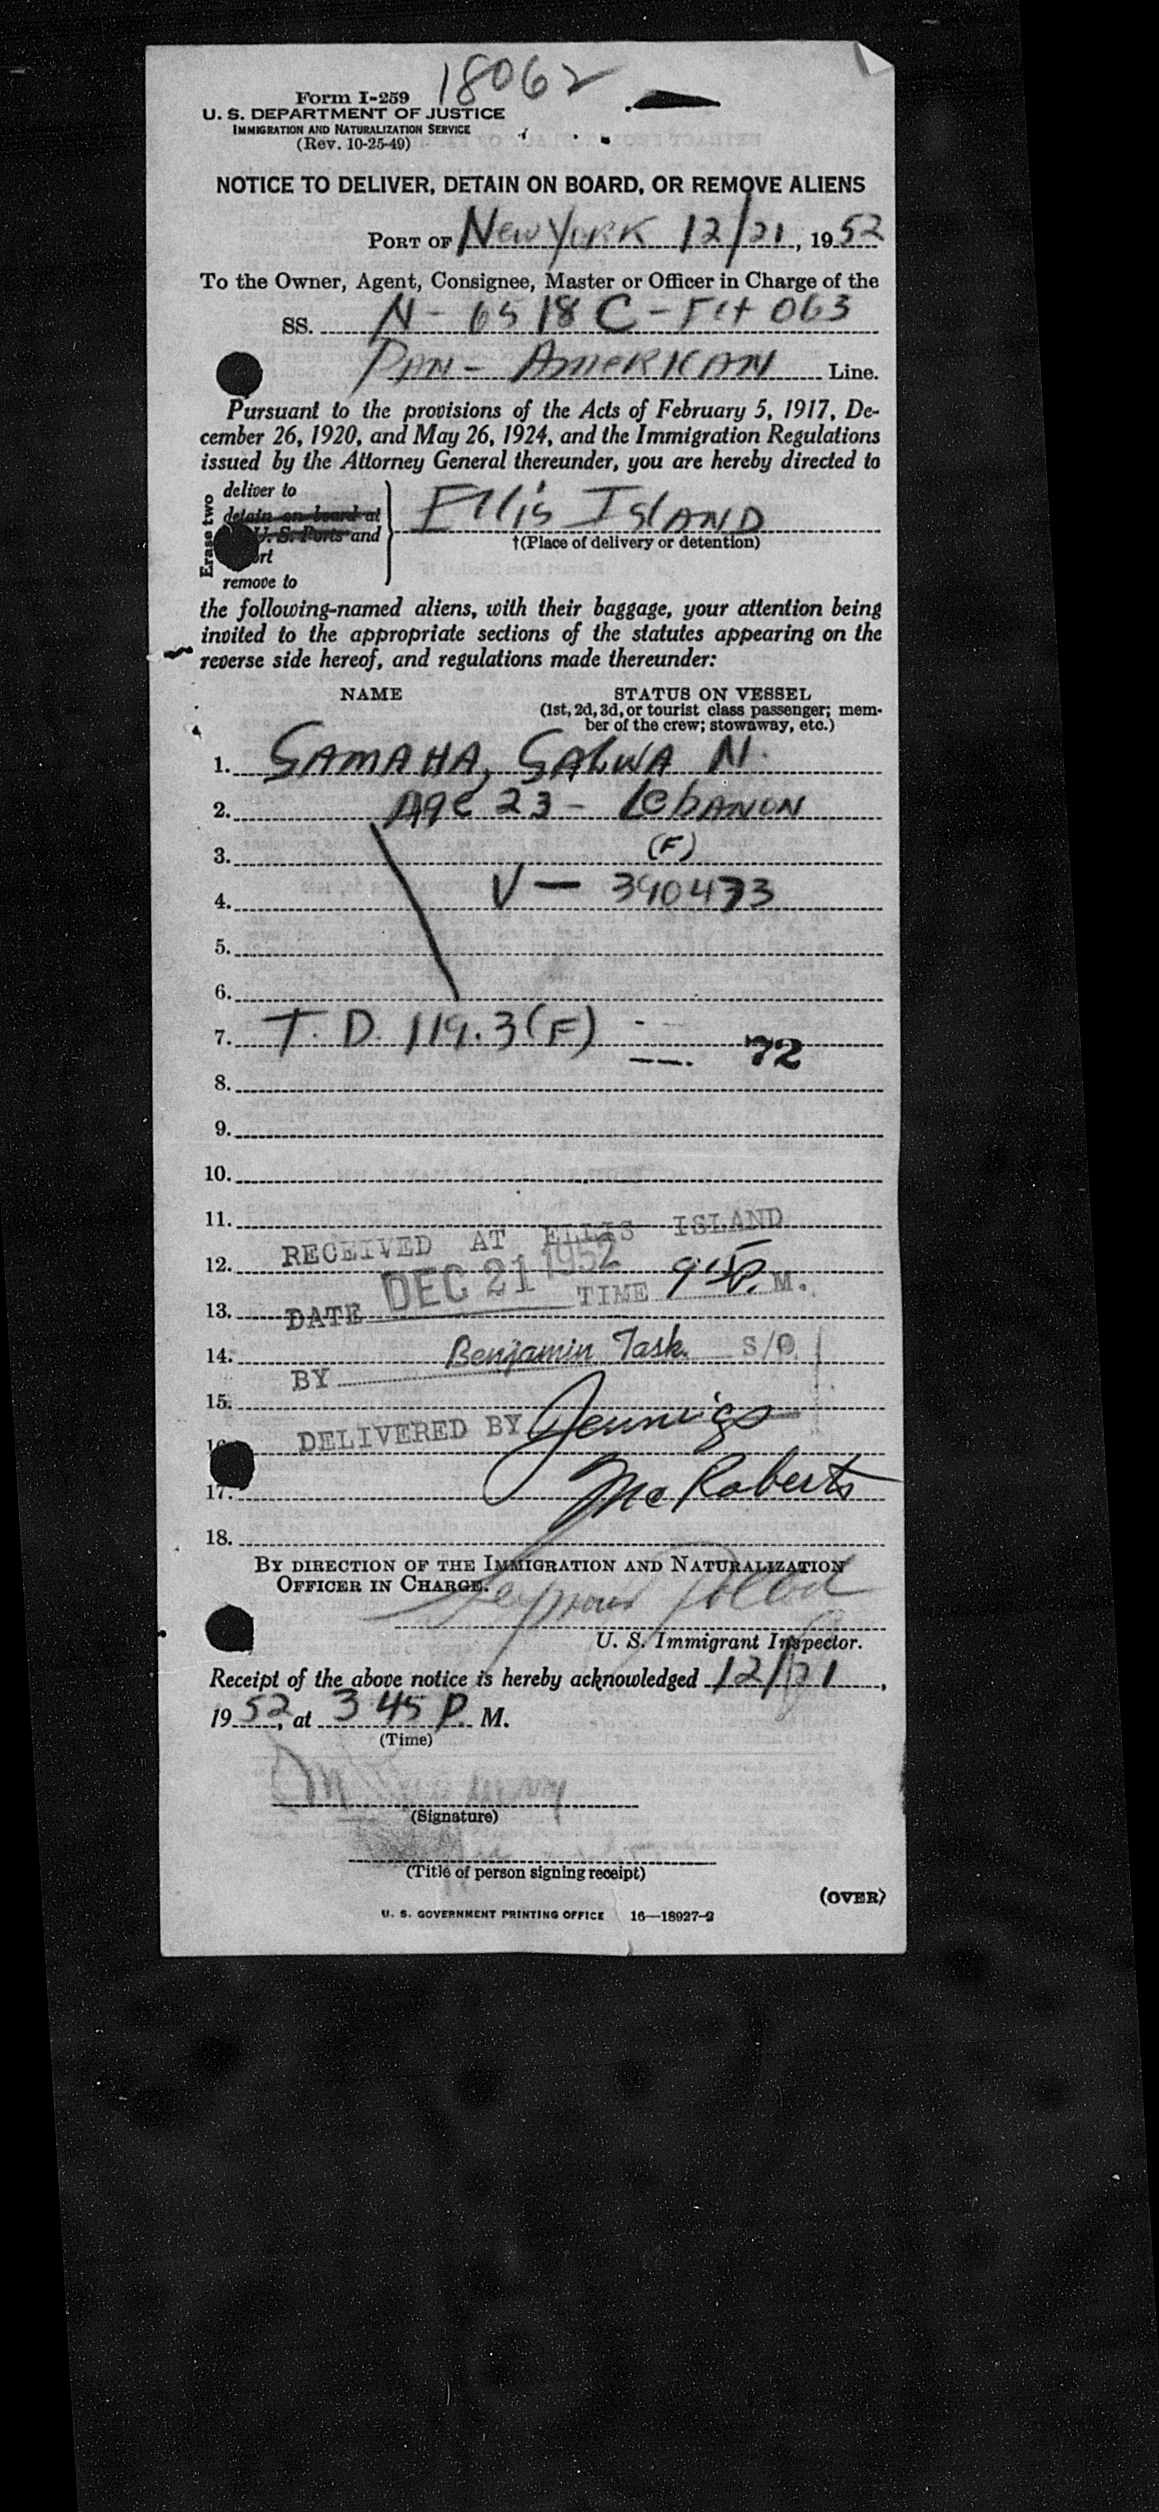 18062
Form I-259
U. S. DEPARTMENT OF JUSTICE
IMMIGRATION AND NATURALIZATION SERVICE
(Rev. 10-25-49)
NOTICE TO DELIVER, DETAIN ON BOARD, OR REMOVE ALIENS
PORT OF New York 12/21, 1952
To the Owner, Agent, Consignee, Master or Officer in Charge of the
SS. N- 6518C - Flt 063
PAN - AMERICAN Line.
Pursuant to the provisions of the Acts of February 5, 1917, De-
cember 26, 1920, and May 26, 1924, and the Immigration Regulations
issued by the Attorney General thereunder, you are hereby directed to
Erase two
deliver to
detain on board at
U. S. Ports and
remove to
Ellis Island
†(Place of delivery or detention)
the following-named aliens, with their baggage, your attention being
invited to the appropriate sections of the statutes appearing on the
reverse side hereof, and regulations made thereunder:
NAME STATUS ON VESSEL
(1st, 2d, 3d, or tourist class passenger; mem-
ber of the crew; stowaway, etc.)
1. SAMAHA, SALWA N.
2. Age 23 - Lebanon
3. (F)
4. V - 390473
5.
6.
7. T. D. 119.3(F) 72
8.
9.
10.
11.
RECEIVED AT ELLIS ISLAND
12.
DATE DEC 21 1952 TIME 9 15 P. M.
13.
14.
BY Benjamin Task S/O
15.
DELIVERED BY Jennings
17. McRoberts
18.
BY DIRECTION OF THE IMMIGRATION AND NATURALIZATION
OFFICER IN CHARGE.
Seymour
U. S. Immigrant Inspector.
Receipt of the above notice is hereby acknowledged 12/21,
1952, at 3 45 P. M.
(Time)
(Signature)
(Title of person signing receipt)
(OVER)
U. S. GOVERNMENT PRINTING OFFICE 16—18927-2